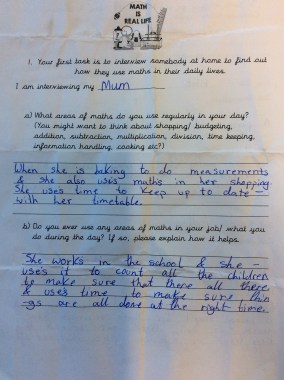 MATH
IS
REAL LIFE
1. Your first task is to interview somebody at home to find out
how they use maths in their daily lives.
I am interviewing my Mum
a) What areas of maths do you use regularly in your day?
(You might want to think about shopping/ budgeting,
addition, subtraction, multiplication, division, time keeping,
information handling, cooking etc?)
When she is baking to do measurements
& she also uses maths in her shopping.
She uses time to keep up to date
with her timetable.
b) Do you ever use any areas of maths in your job/ what you
do during the day? If so, please explain how it helps.
She works in the school & she -
uses it to count all the children
to make sure that there all there
& uses time to make sure thin
-gs are all done at the right time.